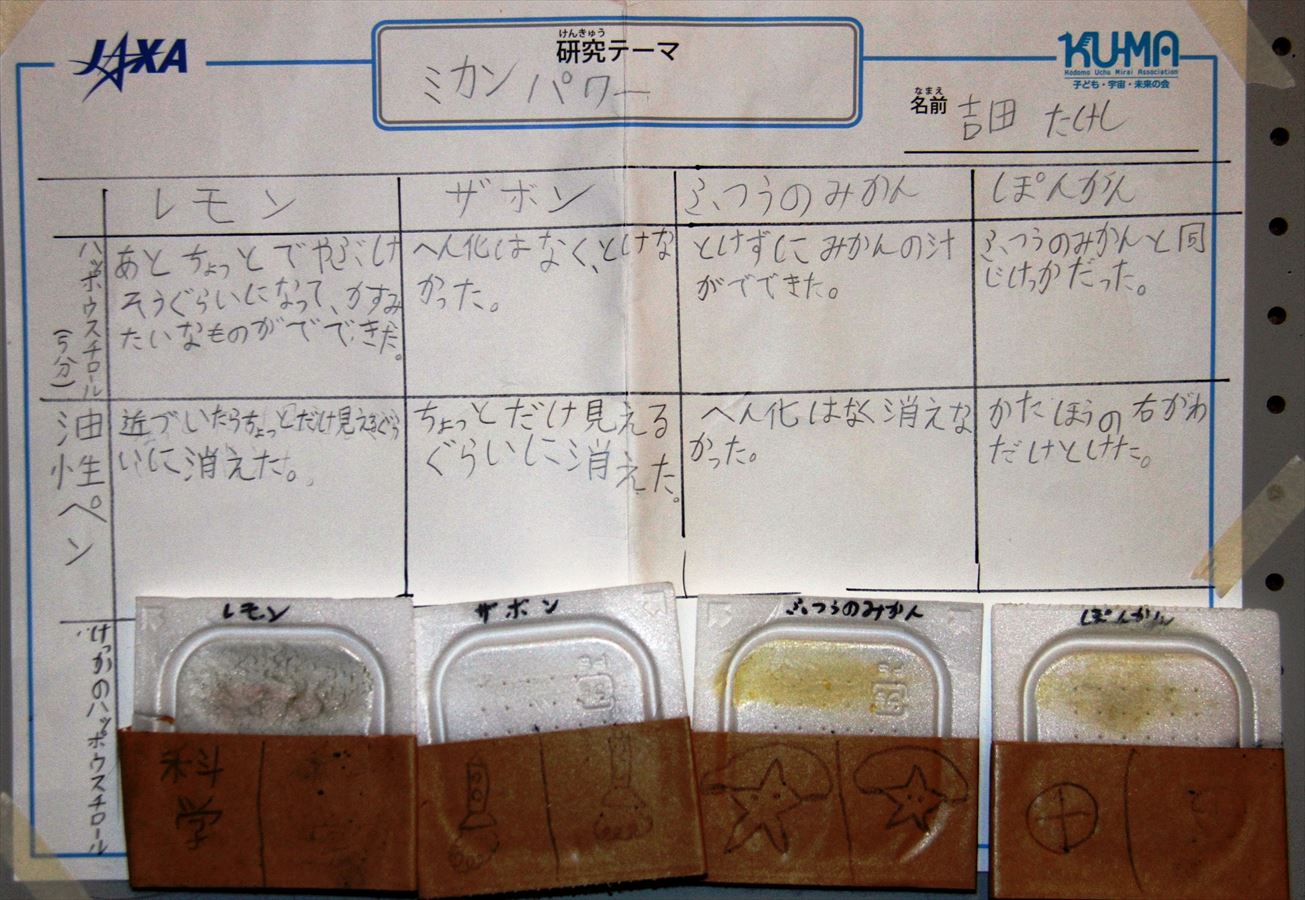 JAXA
けんきゅう
研究テーマ
ミカンパワー
KU-MA
Kodomo Uchu Mirai Association
子ども・宇宙・未来の会
なまえ
名前
吉田 たけし
レモン
ザボン
ふつうのみかん
ぽんかん
ハッポウスチロール
(5分)
あとちょっとでやぶけ
そうぐらいになって、かすみ
たいなものがでできた。
へん化はなく、とけな
かった。
とけずにみかんの汁
がでできた。
ふつうのみかんと同
じけっかだった。
油性ペン
近づいたらちょっとだけ見えるぐら
いに消えた。
ちょっとだけ見える
ぐらいに消えた。
へん化はなく消えな
かった。
かたほうの右がわ
だけとけた。
けっかのハッポウスチロール
レモン
ザボン
ふつうのみかん
ぽんかん
科
学